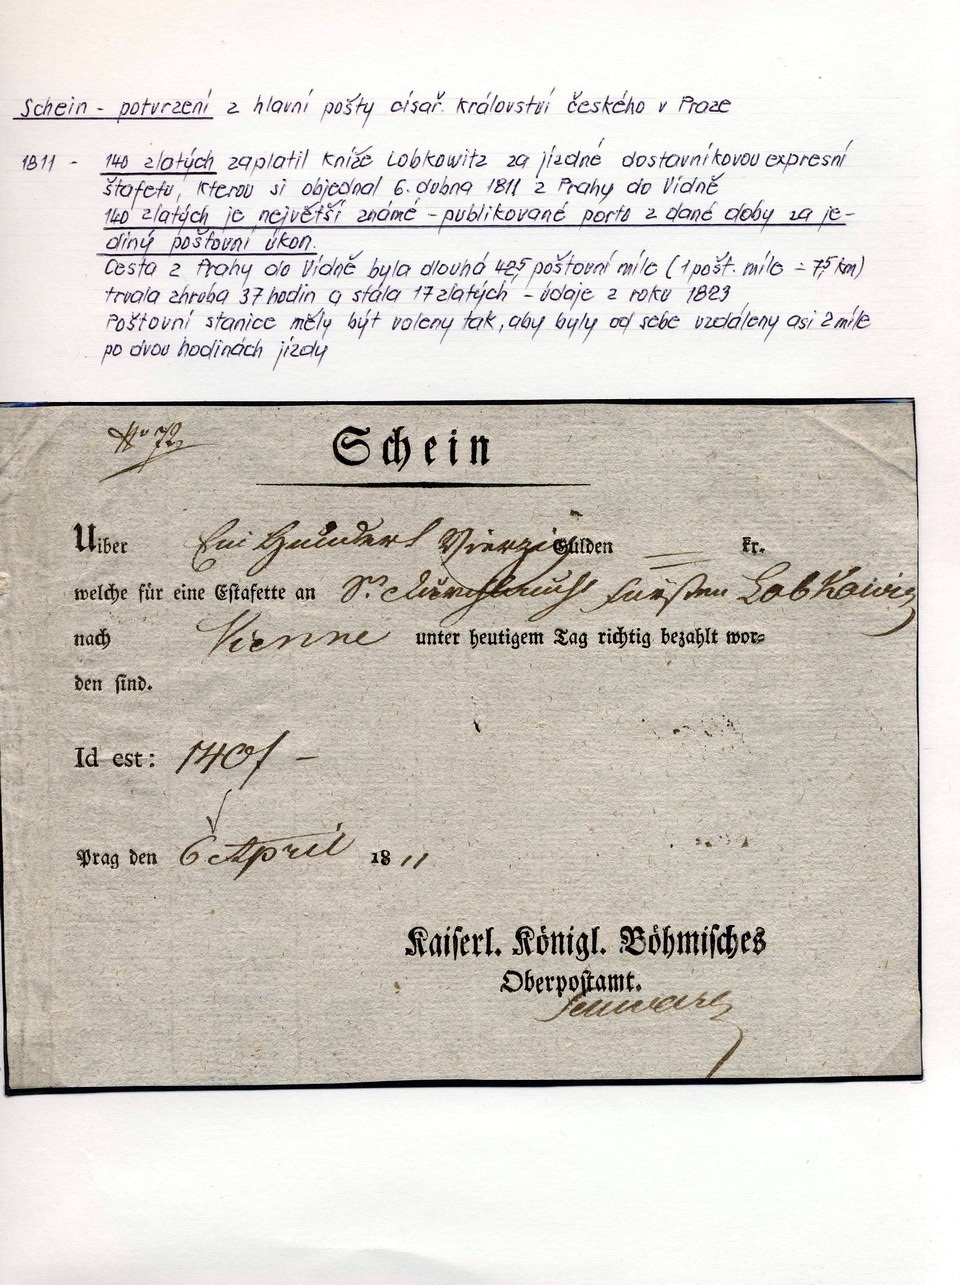 Schein - potvrzení z hlavní pošty císař. království českého v Praze
1811 - 140 zlatých zaplatil kníže Lobkowitz za jízdné dostavníkovou expresní
štafetu, kterou si objednal 6. dubna 1811 z Prahy do Vídně
140 zlatých je největší známé - publikované porto z dané doby za je-
diný poštovní úkon.
Cesta z Prahy do Vídně byla dlouhá 42,5 poštovní míle (1 pošt. míle = 7,5 km)
trvala zhruba 37 hodin a stála 17 zlatých - údaje z roku 1823
Poštovní stanice měly být voleny tak, aby byly od sebe vzdáleny asi 2 míle
po dvou hodinách jízdy
No 72
Schein
Uiber Ein Hundert Vierzig Gulden — kr.
welche für eine Estafette an Sr Durchlaucht Fürsten Lobkowitz
nach Vienne unter heutigem Tag richtig bezahlt wor=
den sind.
Id est: 140f —
Prag den 6 April 1811
Kaiserl. Königl. Böhmisches
Oberpostamt.